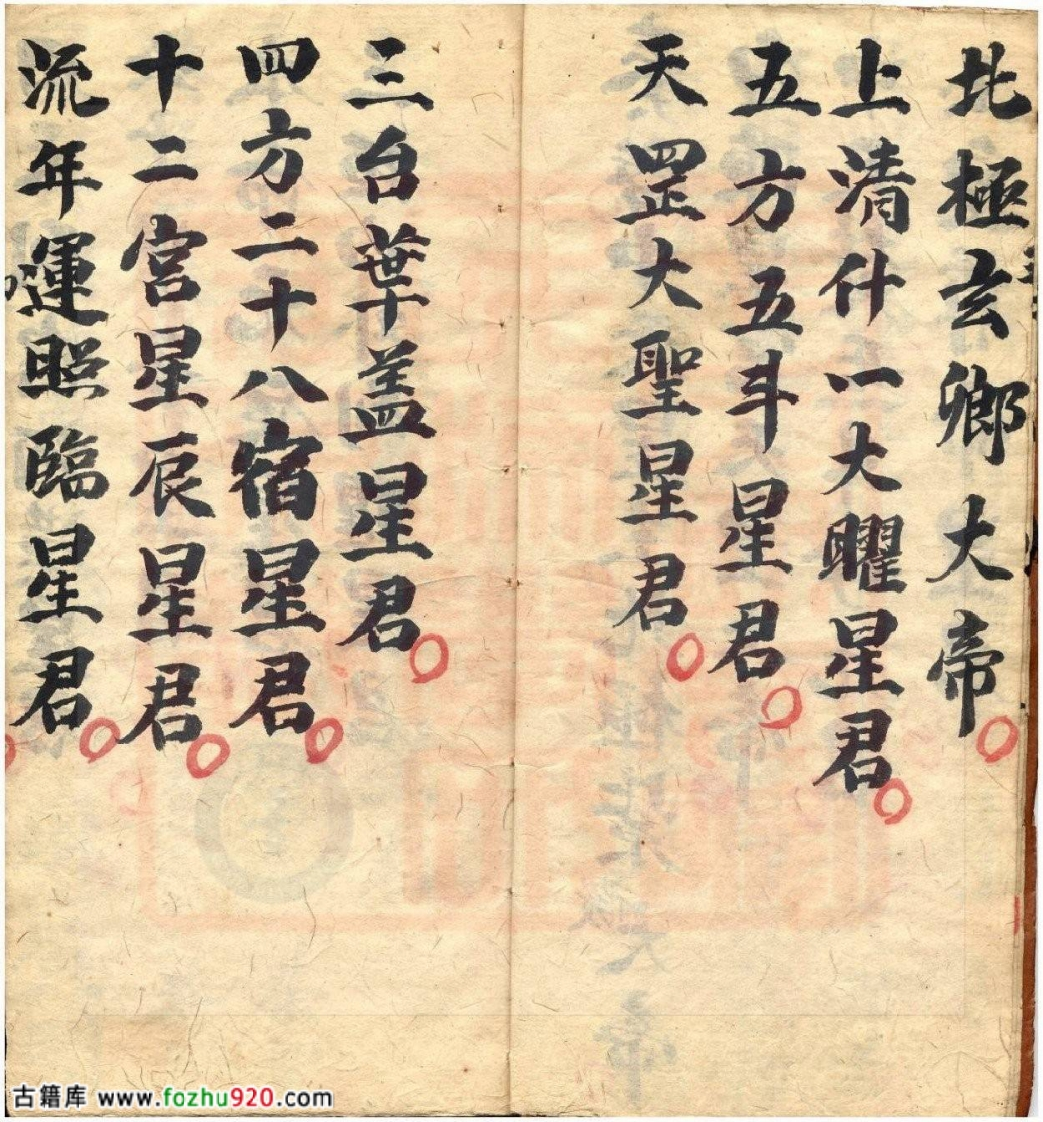 北極玄卿大帝
上清什一大曜星君
五方五斗星君
天罡大聖星君
三台華盖星君
四方二十八宿星君
十二宮星辰星君
流年運照臨星君
古籍库 www.fozhu920.com